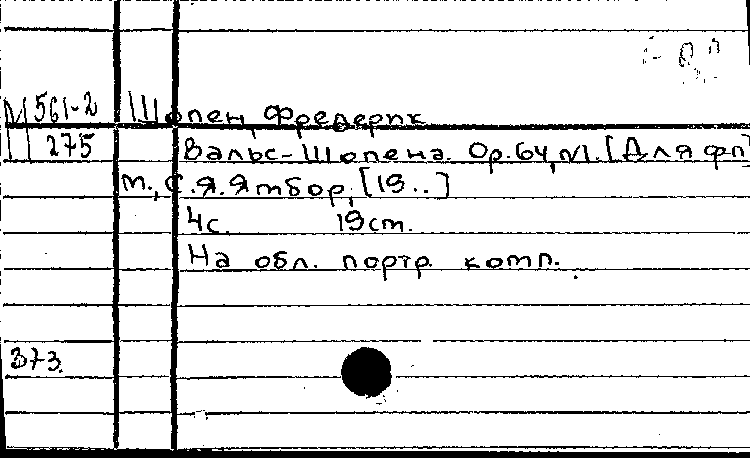 М 561-2 Шопен, Фредерик
Ш 275 Вальс Шопена. Op. 64, N1. [Для фп]
М., С.Я. Ямбор, [19..]
4с. 19 cm.
На обл. портр. комп.
373.